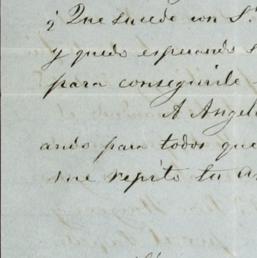 ¿Que sucede con S.
y quedo esperando
para conseguirle
A Angel
ando para todos que
me repito su